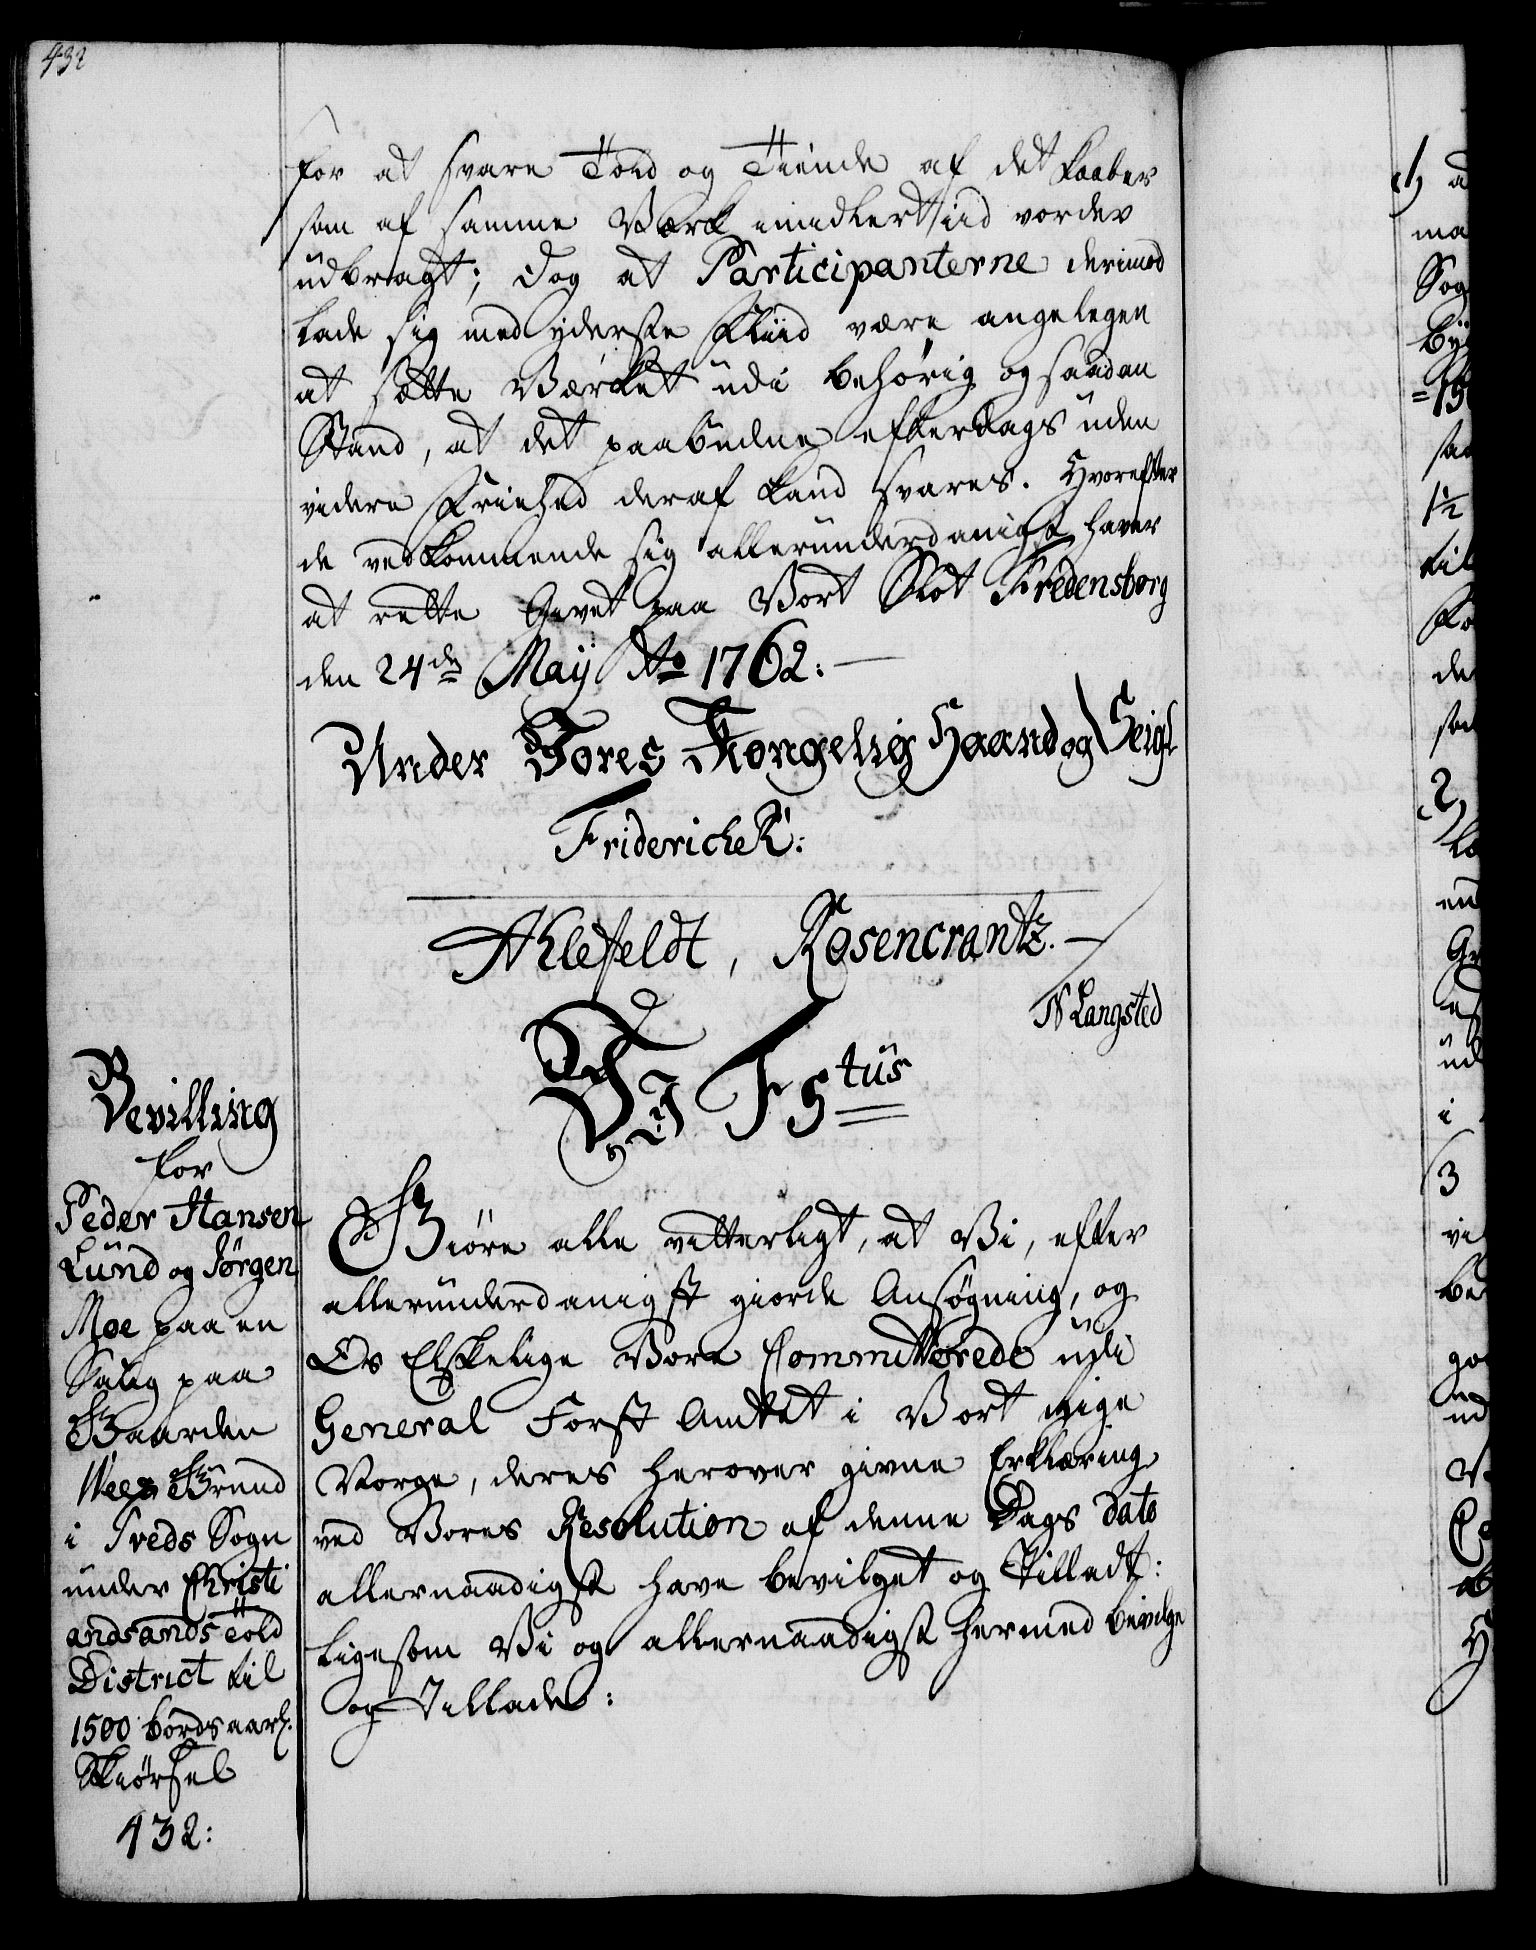 432
for at svare Told og Tiende af det Kaaber
som af samme Værck imidlertiid vorder
udbragt; dog at Participanterne derimod
lade sig med yderste Fliid være angelegen
at sætte Værcket udi behörig og saadan
Stand, at det paabudne efterdags uden
videre Friehed deraf kand svares. Hvorefter
de vedkommende sig allerunderdanigst haver
at rette Givet paa Vort Slot Fredensborg
den 24de Maij Ao 1762:
Under Vores Kongelig Haand og Seigl
Friderich R:
Ahlefeldt, Rosencrantz.
N Langsted
Vi F 5tus
Bevilling
for
Peder Hansen
Lund og Jørgen
Moe paa en
Saug paa
Gaarden
Grund
i Treds Sogn
under Christi
andsands Told
District til
1500 bords aarl.
Skiörsel
432:
Giöre alle vitterligt, at Vi, efter
allerunderdanigst giorde Ansøgning, og
Os Elskelige Vore Committerede udi
General Forst Amtet i Vort Rige
Norge, deres herover givne Erklæring
ved Vores Resolution af denne Dags dato
allernaadigst have bevilget og Tilladt:
ligesom Vi og allernaadigst hermed bevilge
og Tillade: